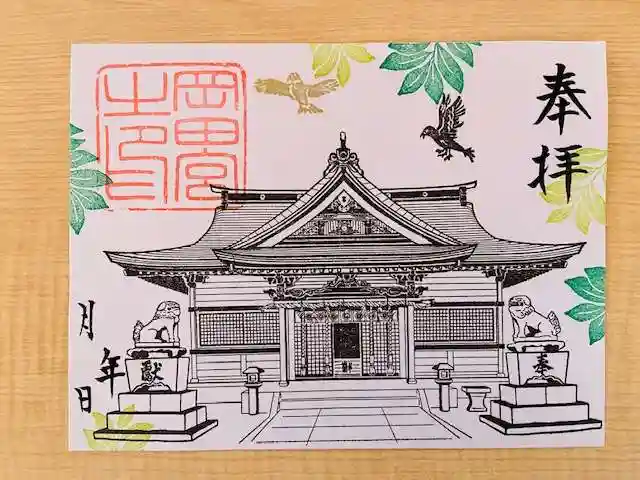 奉拝
岡田宮
之印
年
月
日
奉
献